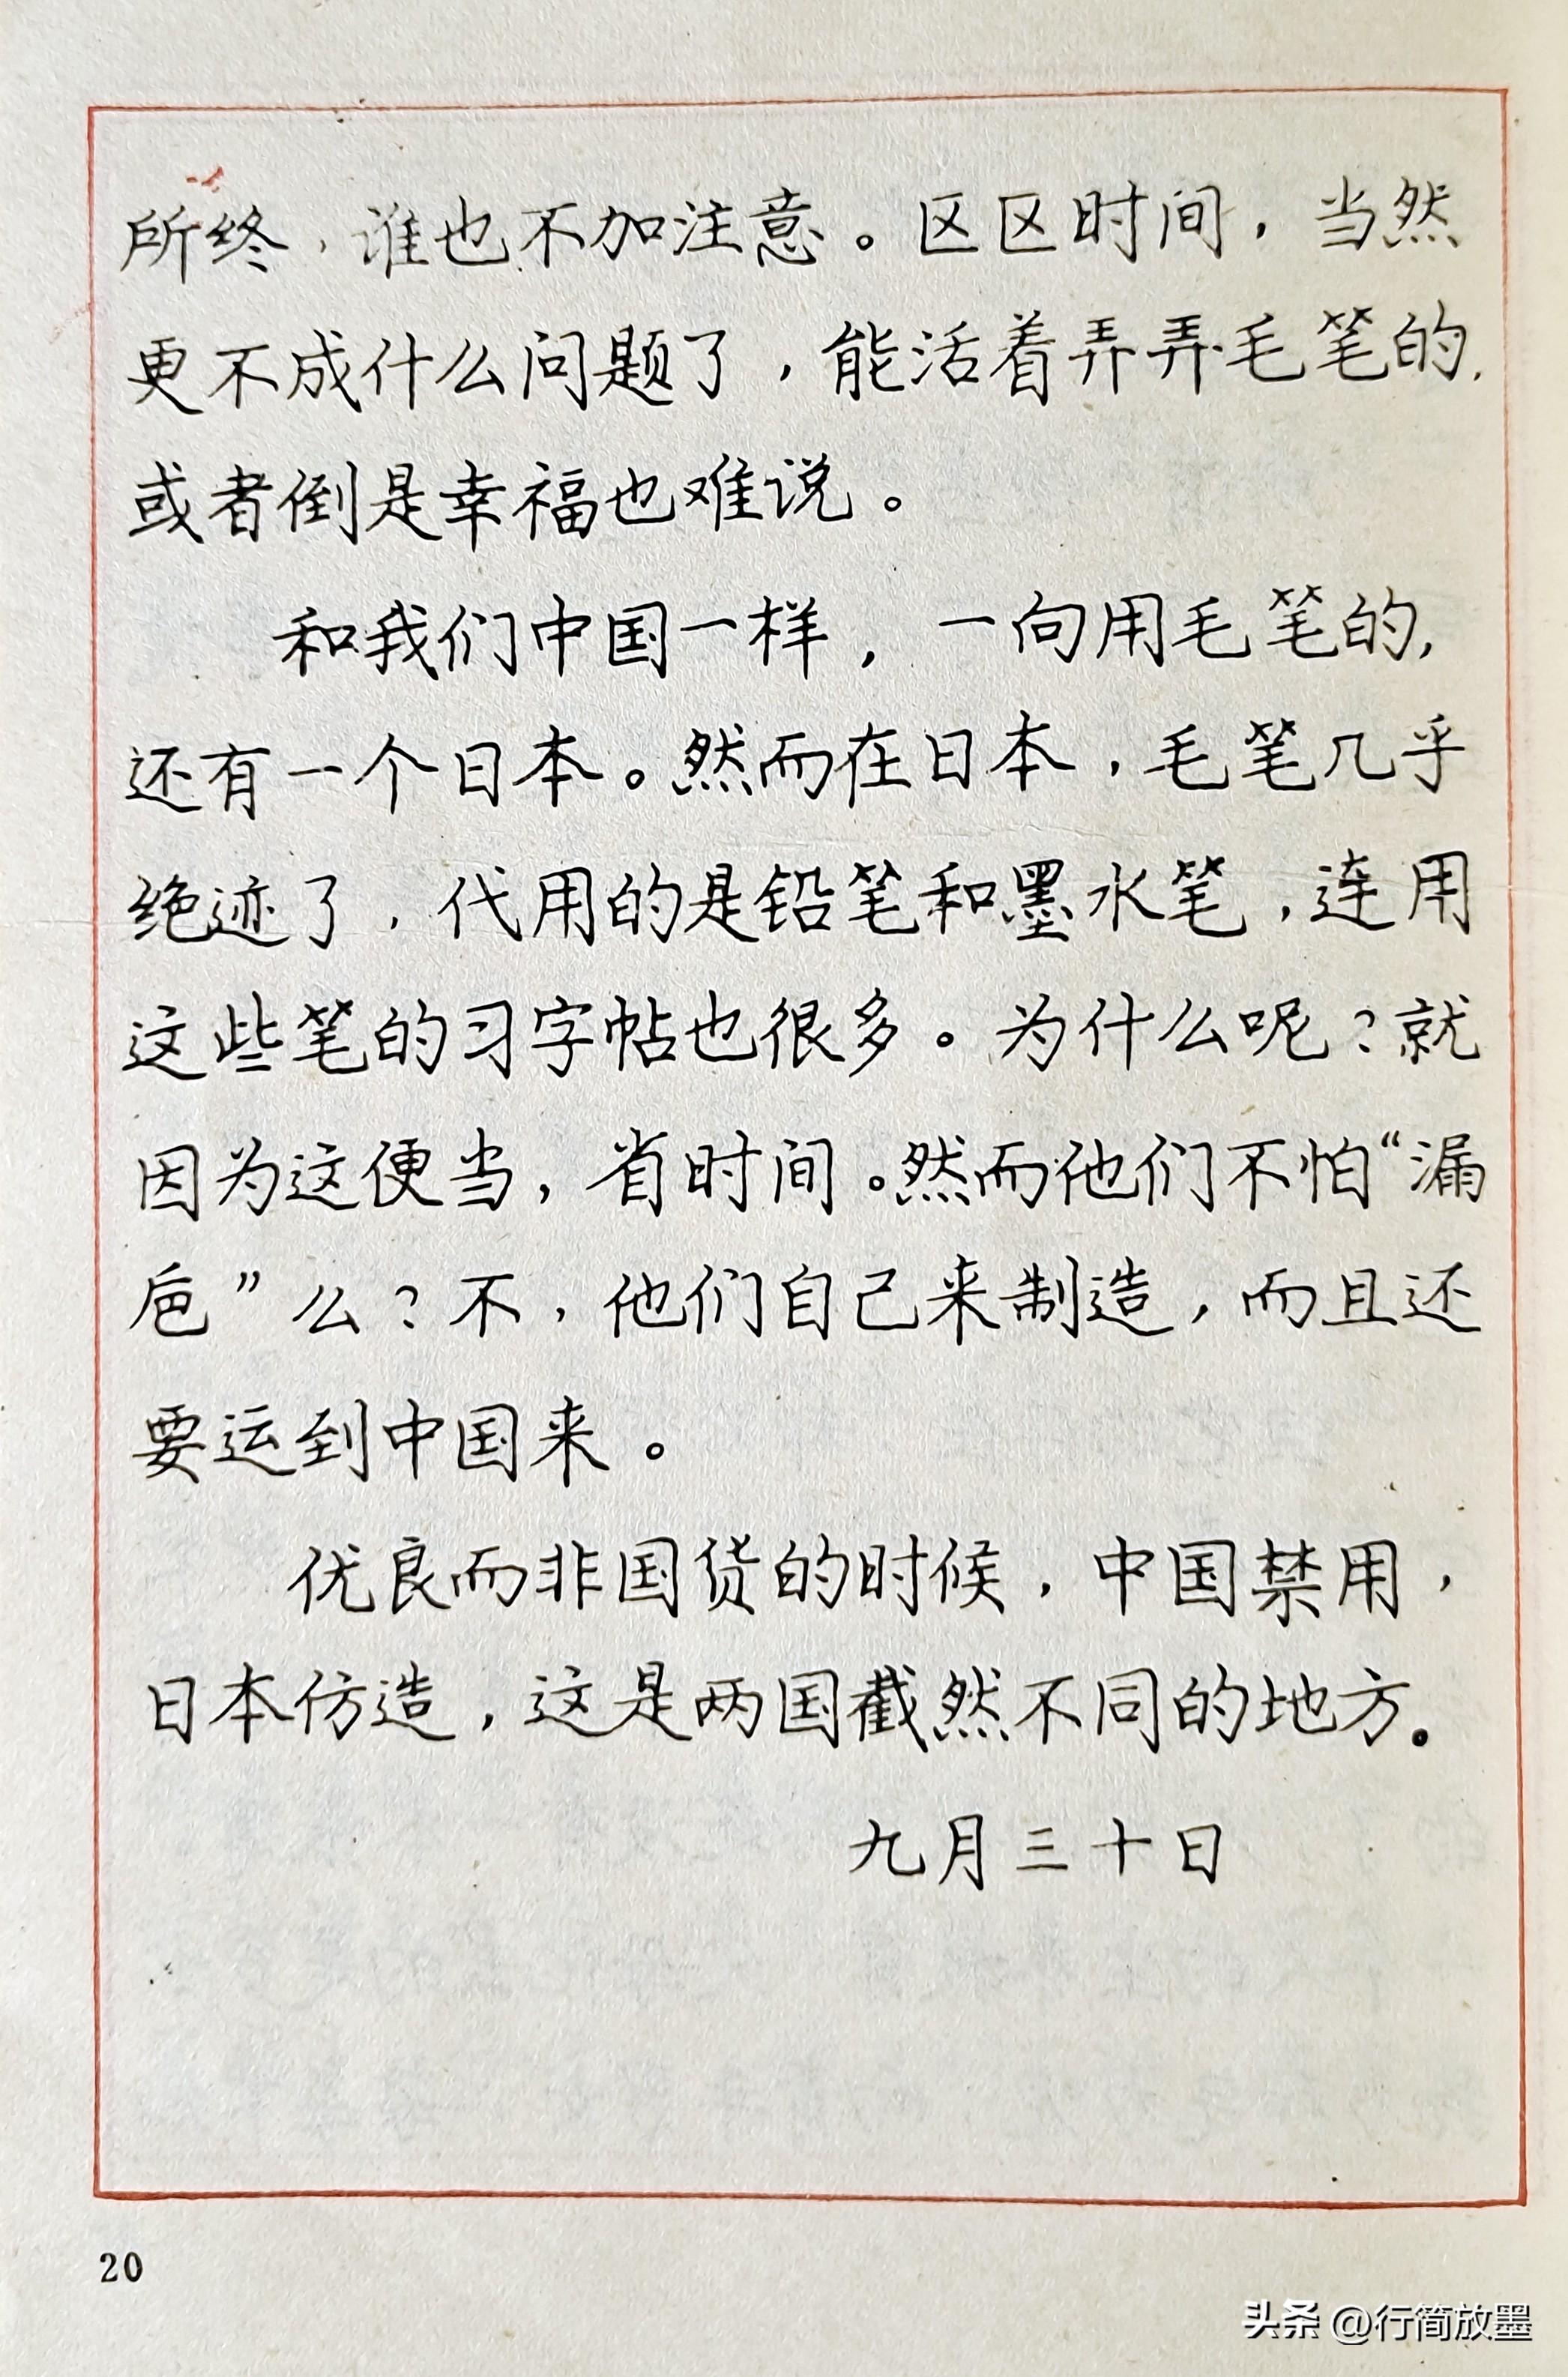 所终，谁也不加注意。区区时间，当然
更不成什么问题了，能活着弄弄毛笔的，
或者倒是幸福也难说。
和我们中国一样，一向用毛笔的，
还有一个日本。然而在日本，毛笔几乎
绝迹了，代用的是铅笔和墨水笔，连用
这些笔的习字帖也很多。为什么呢？就
因为这便当，省时间。然而他们不怕“漏
卮”么？不，他们自己来制造，而且还
要运到中国来。
优良而非国货的时候，中国禁用，
日本仿造，这是两国截然不同的地方。
九月三十日
20
头条 @行简放墨